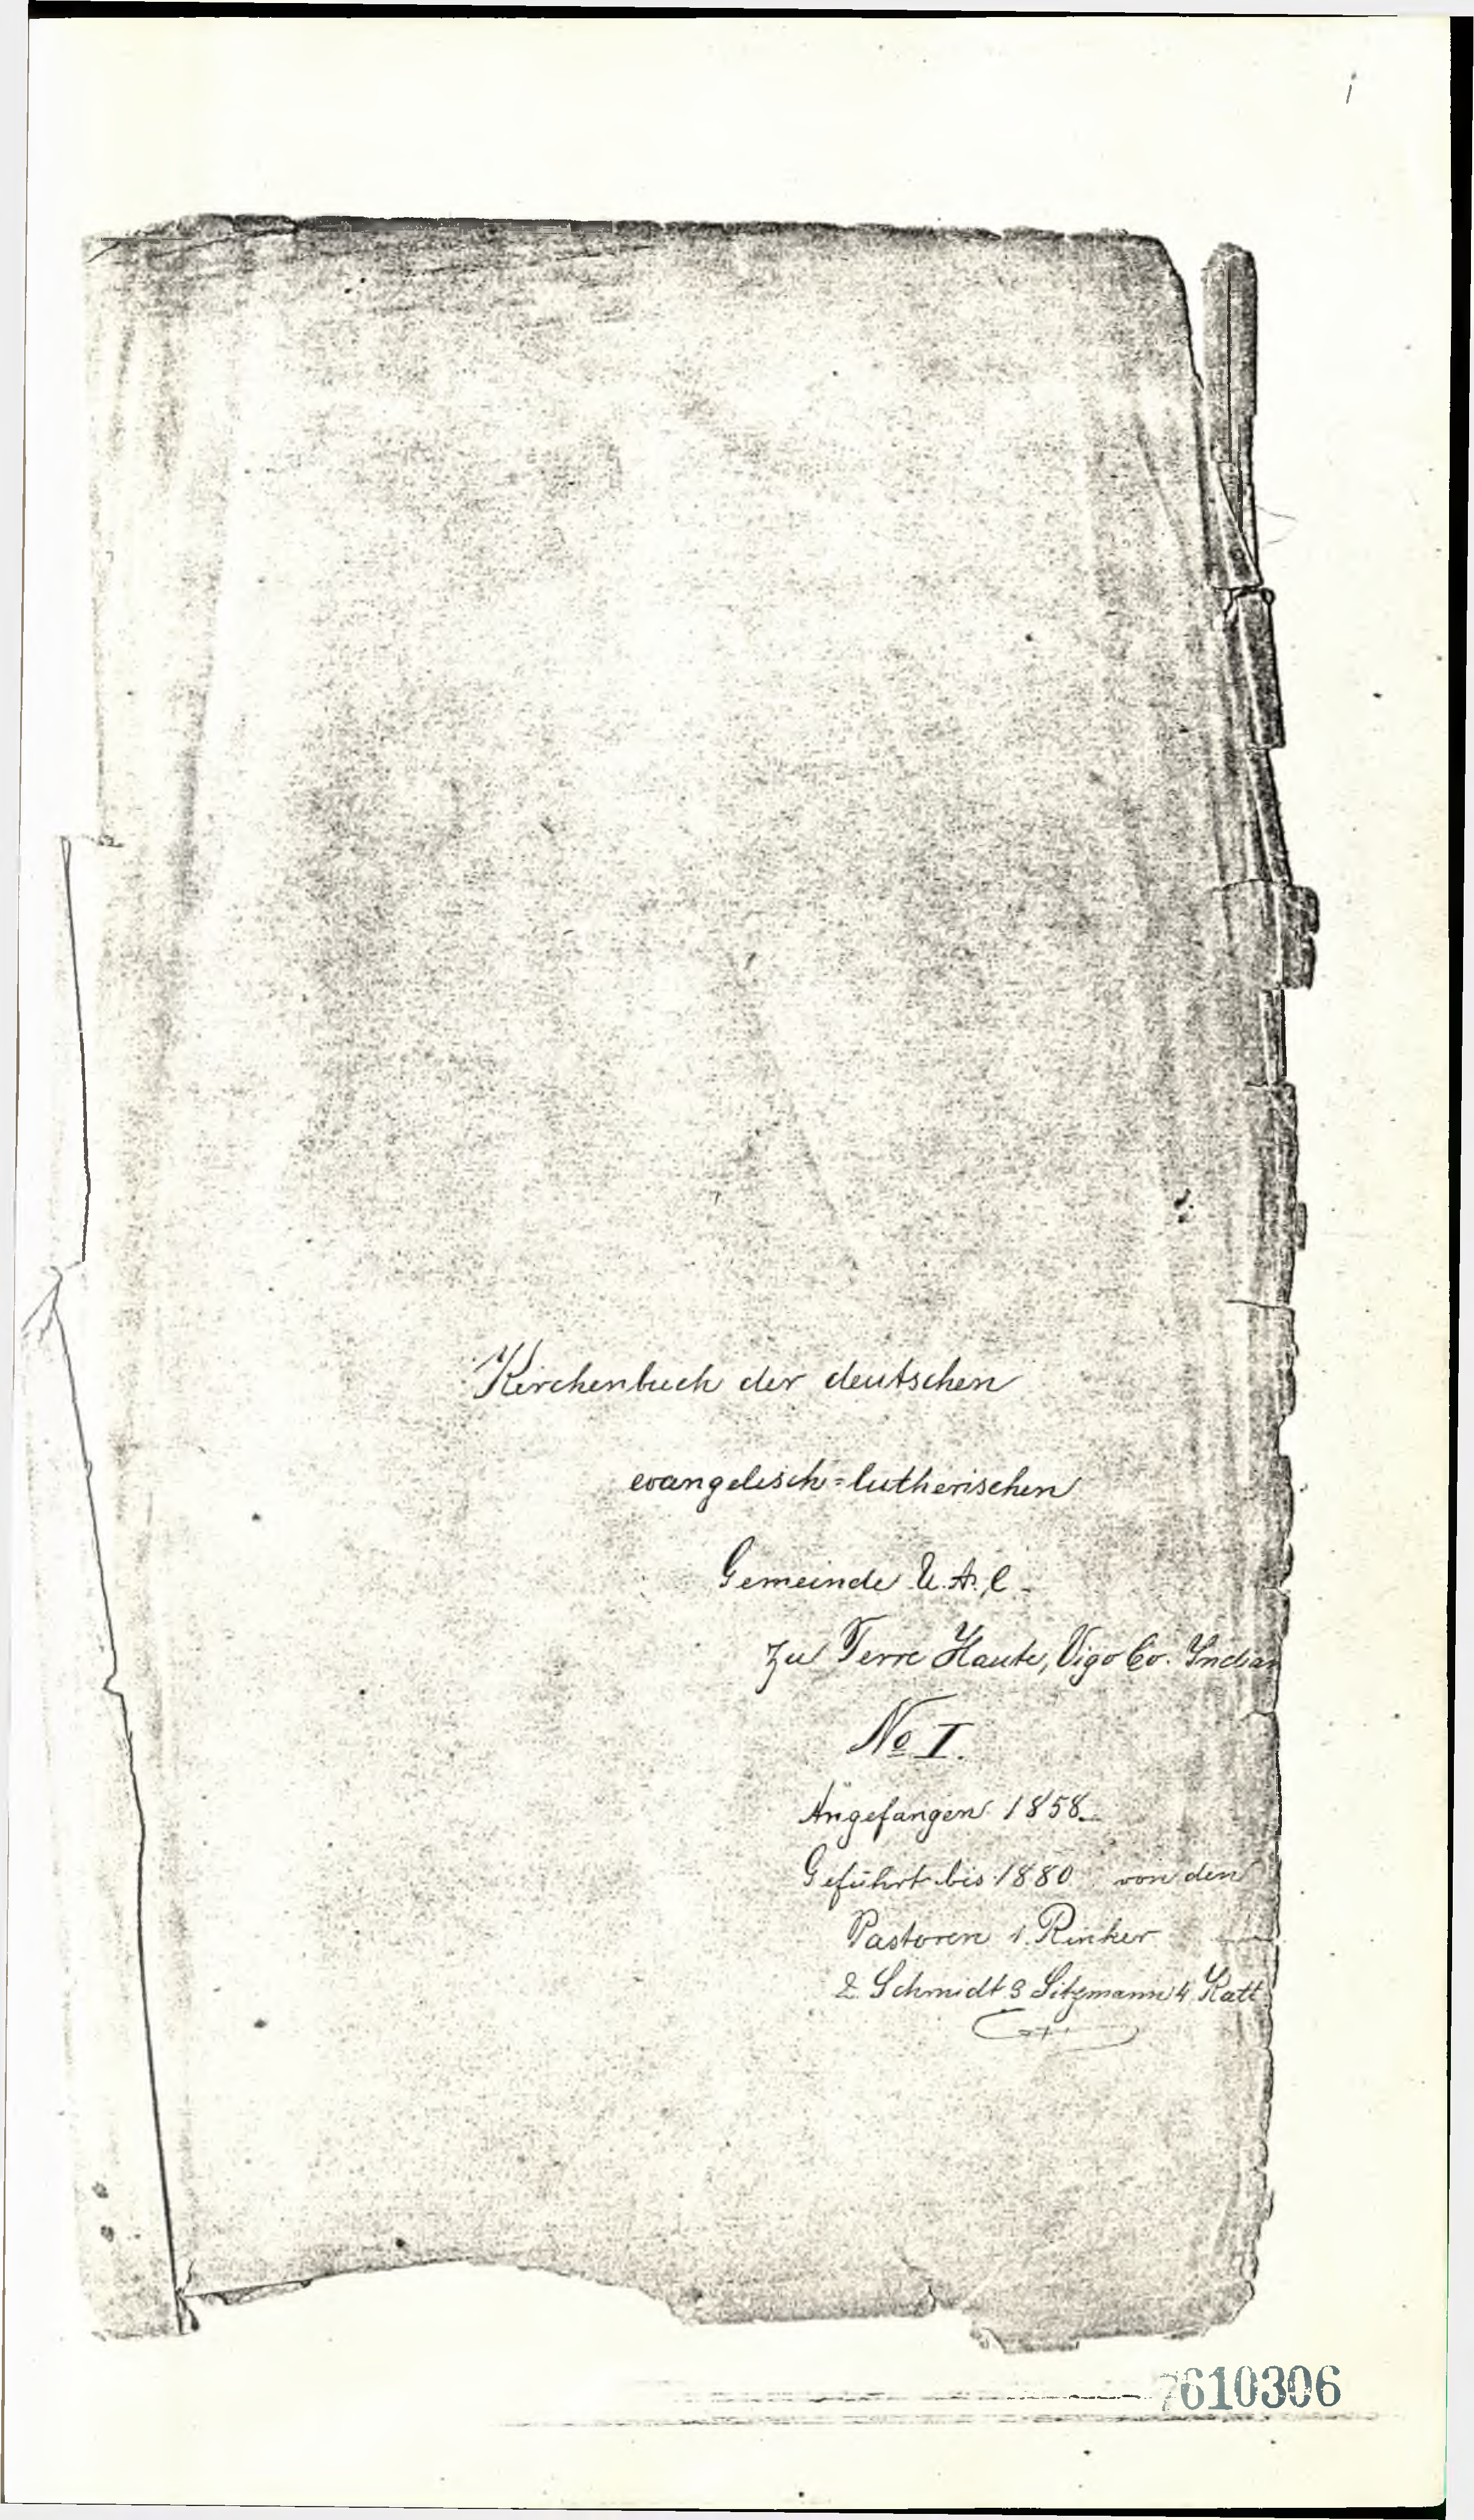 i
Kirchenbuch der deutschen
evangelisch=lutherischen
Gemeinde U.A.C.
zu Terre Haute, Vigo Co. Indian
No I.
Angefangen 1858.
Geführt bis 1880 von den
Pastoren 1. Rinker
2 Schmidt 3 Sitzmann 4 Katt
7610306